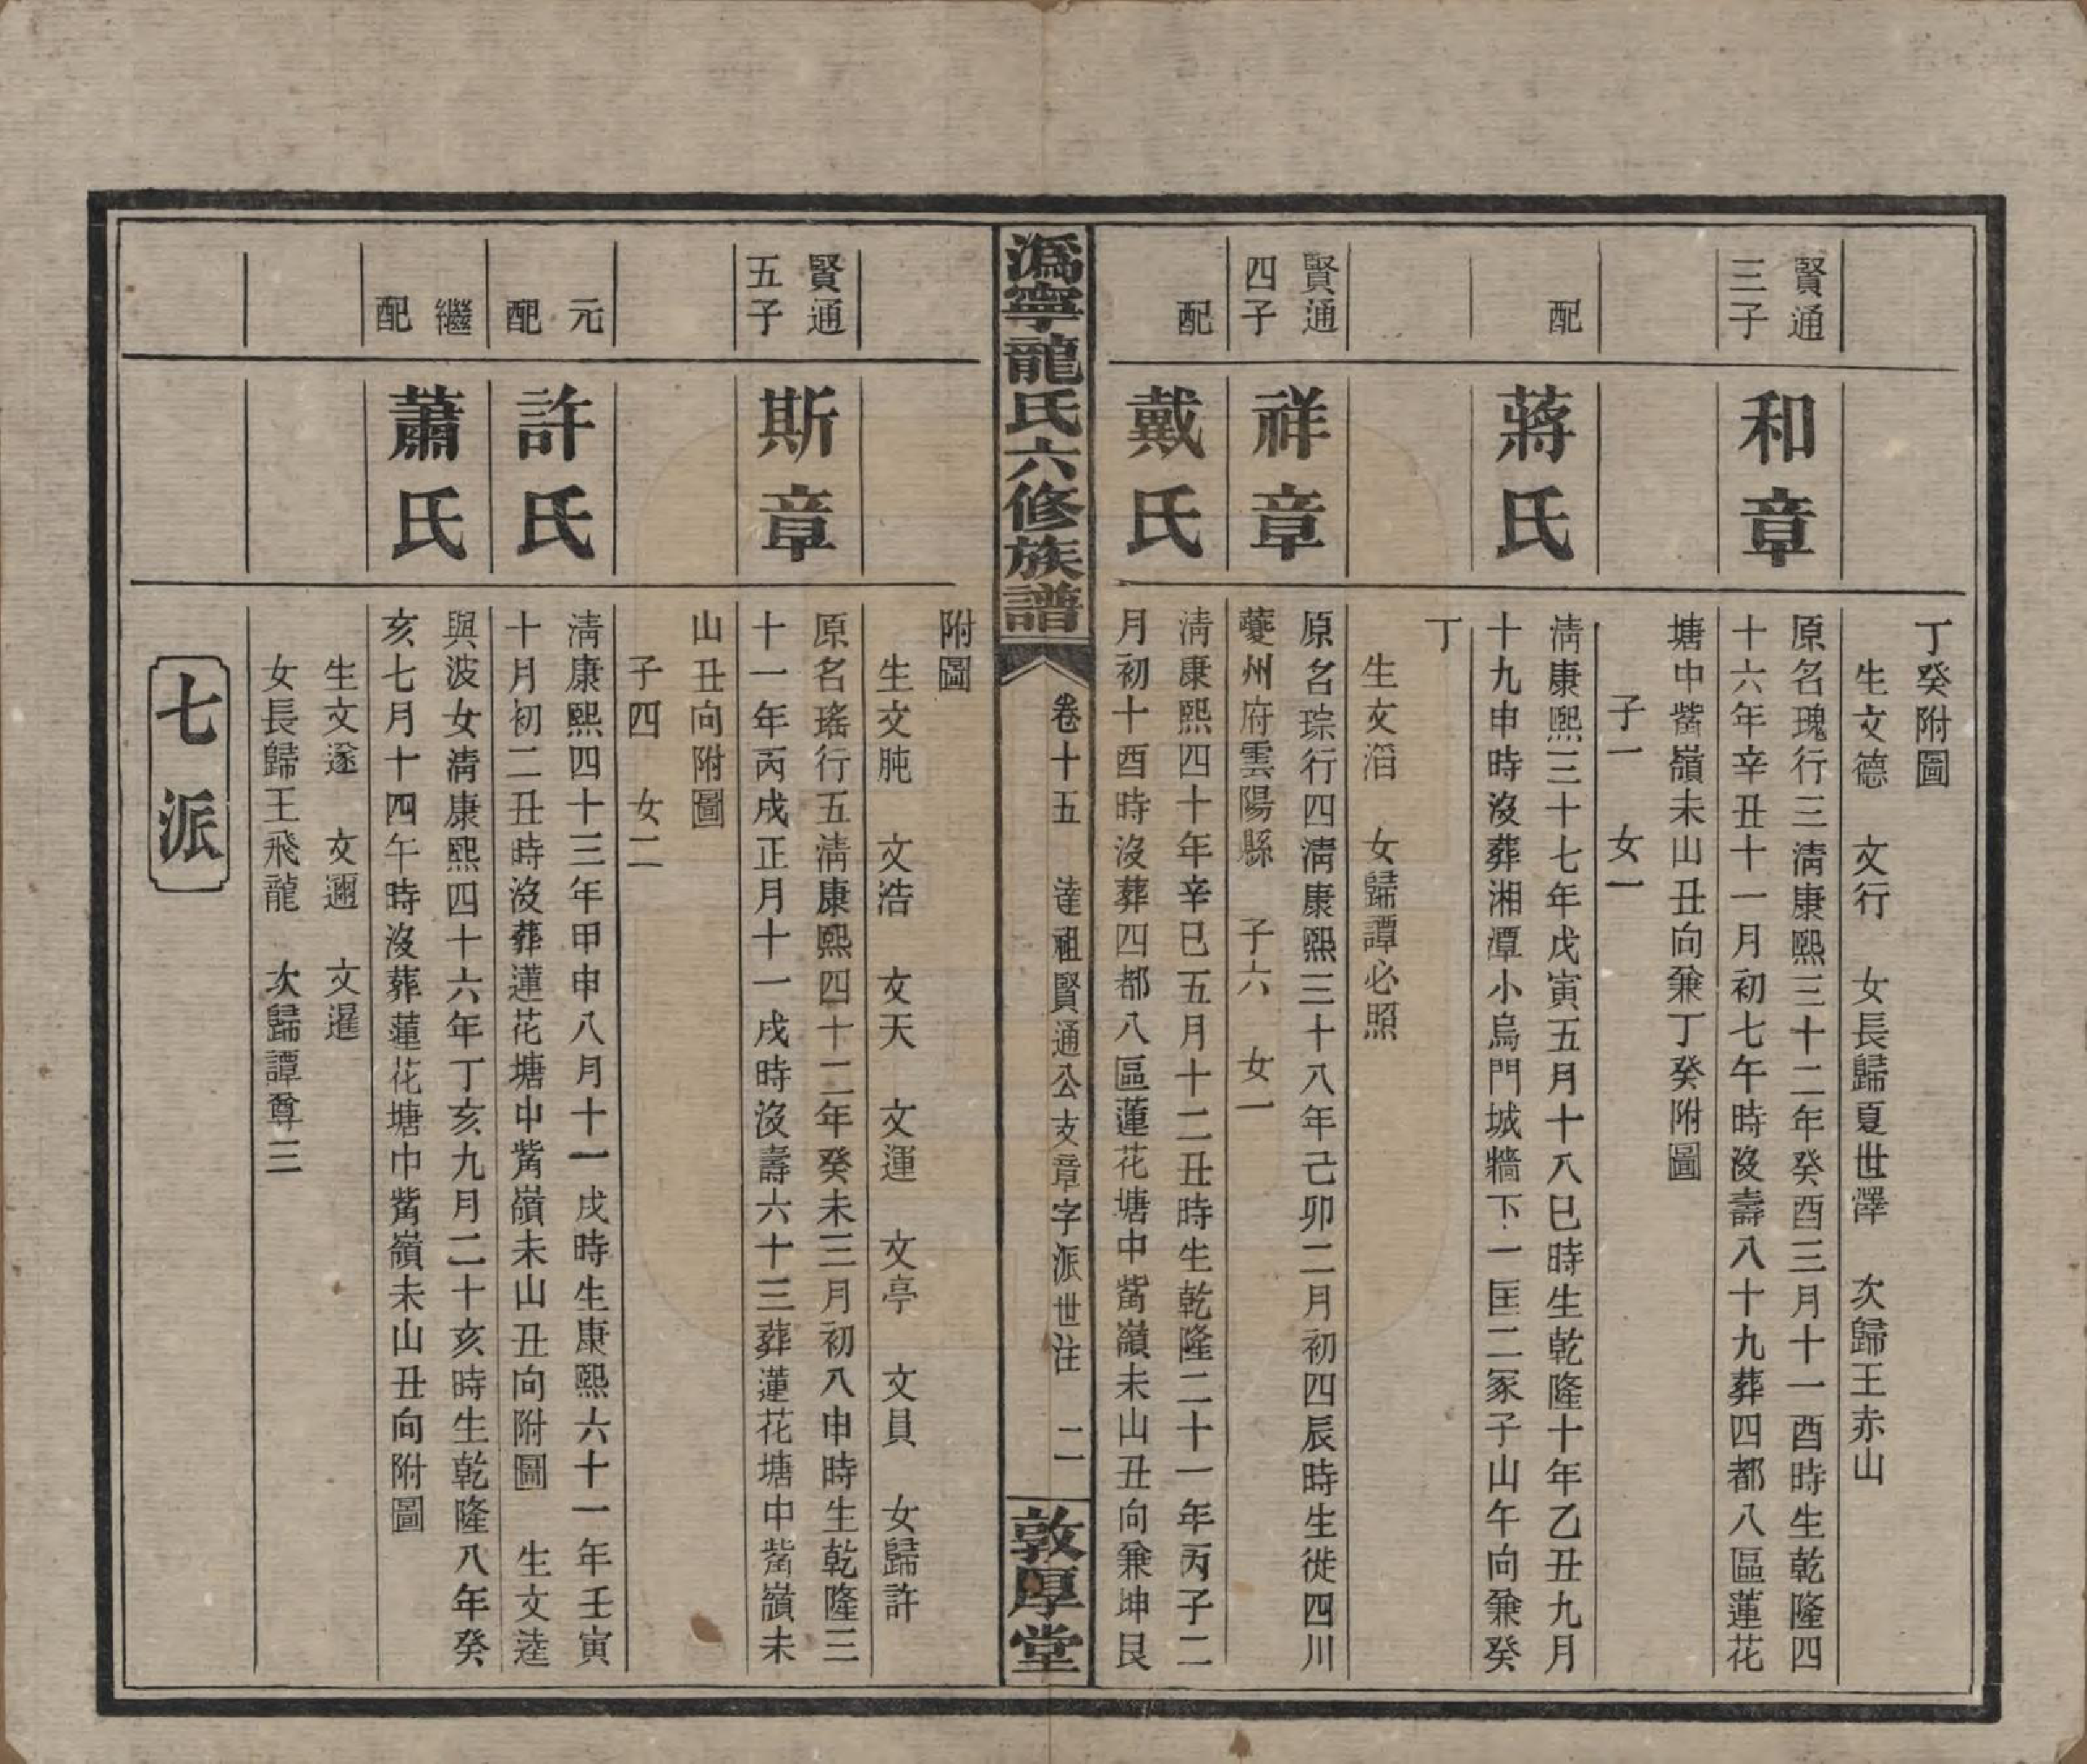 丁癸附圖
生文德　文行　女長歸夏世澤　次歸王赤山
賢通三子
和章
原名瑰行三淸康熙三十二年癸酉三月十一酉時生乾隆四
十六年辛丑十一月初七午時沒壽八十九葬四都八區蓮花
塘中嵴嶺未山丑向兼丁癸附圖
子一　女一
配
蔣氏
淸康熙三十七年戊寅五月十八巳時生乾隆十年乙丑九月
十九申時沒葬湘潭小烏門城牆下一匡二冢子山午向兼癸
丁
生文滔　女歸譚必照
賢通四子
祥章
原名琮行四淸康熙三十八年己卯二月初四辰時生徙四川
夔州府雲陽縣　子六　女一
配
戴氏
淸康熙四十年辛巳五月十二丑時生乾隆二十一年丙子二
月初十酉時沒葬四都八區蓮花塘中嵴嶺未山丑向兼坤艮
溈寧龍氏六修族譜
卷十五　達祖賢通公支章字派世注　二
敦厚堂
附圖
生文肫　文浩　文天　文運　文亭　文員　女歸許
賢通五子
斯章
原名瑤行五淸康熙四十二年癸未三月初八申時生乾隆三
十一年丙戌正月十一戌時沒壽六十三葬蓮花塘中嵴嶺未
山丑向附圖
子四　女二
元配
許氏
淸康熙四十三年甲申八月十一戌時生康熙六十一年壬寅
十月初二丑時沒葬蓮花塘中嵴嶺未山丑向附圖　生文逵
繼配
蕭氏
與波女淸康熙四十六年丁亥九月二十亥時生乾隆八年癸
亥七月十四午時沒葬蓮花塘中嵴嶺未山丑向附圖
生文遂　文邇　文暹
女長歸王飛龍　次歸譚尊三
七派